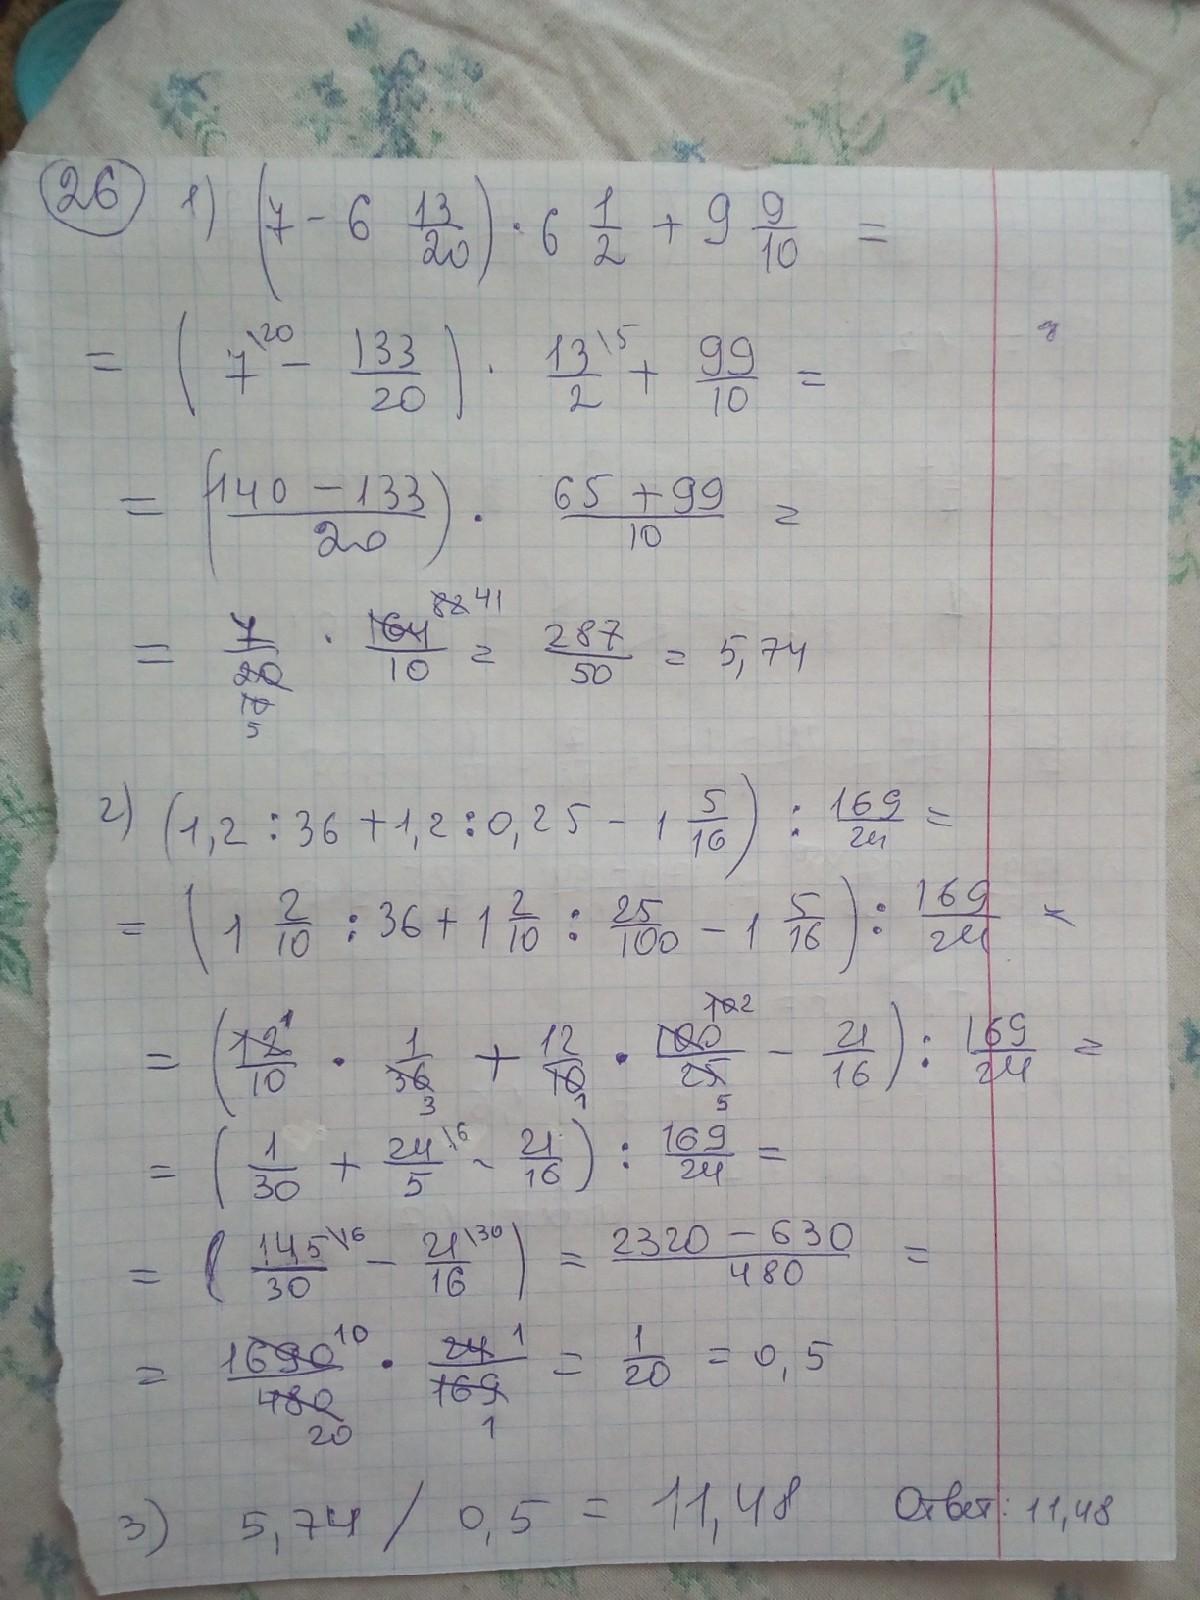 26 1) (7 - 6 13/20) · 6 1/2 + 9 9/10 =
= (7\20 - 133/20) · 13\5/2 + 99/10 =
= (140 - 133/20) · 65 + 99/10 =
= 7/20 10 5 · 164 82 41/10 = 287/50 = 5,74
2) (1,2 : 36 + 1,2 : 0,25 - 1 5/16) : 169/24 =
= (1 2/10 : 36 + 1 2/10 : 25/100 - 1 5/16) : 169/24 =
= (12 1/10 · 1/36 3 + 12/10 1 · 100 10 2/25 5 - 21/16) : 169/24 =
= (1/30 + 24\6/5 - 21/16) : 169/24 =
= (145\16/30 - 21\30/16) = 2320 - 630/480 =
= 1690 10/480 20 · 24 1/169 1 = 1/20 = 0,5
3) 5,74 / 0,5 = 11,48 Ответ: 11,48